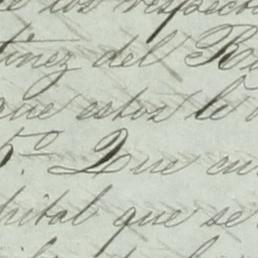 e los respecti
tinez del Ro
que estos le
5.º Que en
pital que se